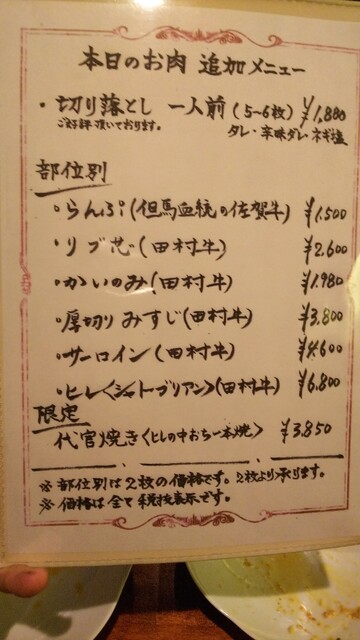 本日のお肉 追加メニュー
・切り落とし 一人前(5~6枚) ¥1,880
ご好評頂いております。 タレ・辛味ダレ・ネギ塩
部位別
・らんぷ(但馬血統の佐賀牛) ¥1,500
・リブ芯(田村牛) ¥2,600
・かいのみ(田村牛) ¥1,980
・厚切りみすじ(田村牛) ¥3,800
・サーロイン(田村牛) ¥4,600
・ヒレ<シャトーブリアン>(田村牛) ¥6,800
限定
代官焼き<ヒレの中おち一本焼> ¥3,850
※部位別は2枚の価格です。2枚より承ります。
※価格は全て税抜表示です。